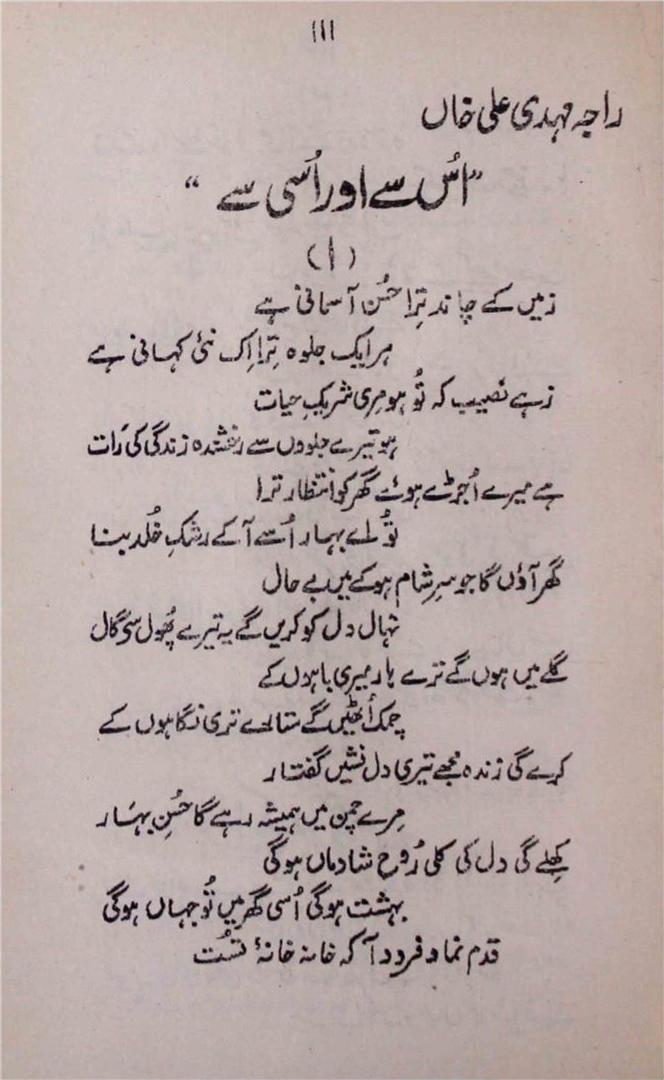 ۱۱۱
راجہ مہدی علی خاں
"اُس سے اور اُسی سے"
(۱)
زمیں کے چاند تِرا حُسن آسمانی ہے
ہر ایک جلوہ تِرا اِک نئی کہانی ہے
زہے نصیب کہ تُو ہو مِری شریکِ حیات
ہو تیرے جلووں سے رخشندہ زندگی کی رَات
ہے میرے اُجڑے ہوئے گھر کو انتظار ترا
تُو اے بہار اُسے آ کے رشکِ خُلد بنا
گھر آؤں گا جو سرِ شام ہو کے میں بے حال
نہال دل کو کریں گے یہ تیرے پُھول سی گال
گلے میں ہوں گے ترے ہار میری باہوں کے
چمک اُٹھیں گے ستارے تری نگاہوں کے
کرے گی زندہ مجھے تیری دل نشیں گفتار
مِرے چمن میں ہمیشہ رہے گا حُسنِ بہَار
کِھلے گی دل کی کلی رُوح شادماں ہوگی
بہشت ہوگی اُسی گھر میں تُو جہاں ہوگی
قدم نما و فرود آ کہ خانہ خانۂ تُست